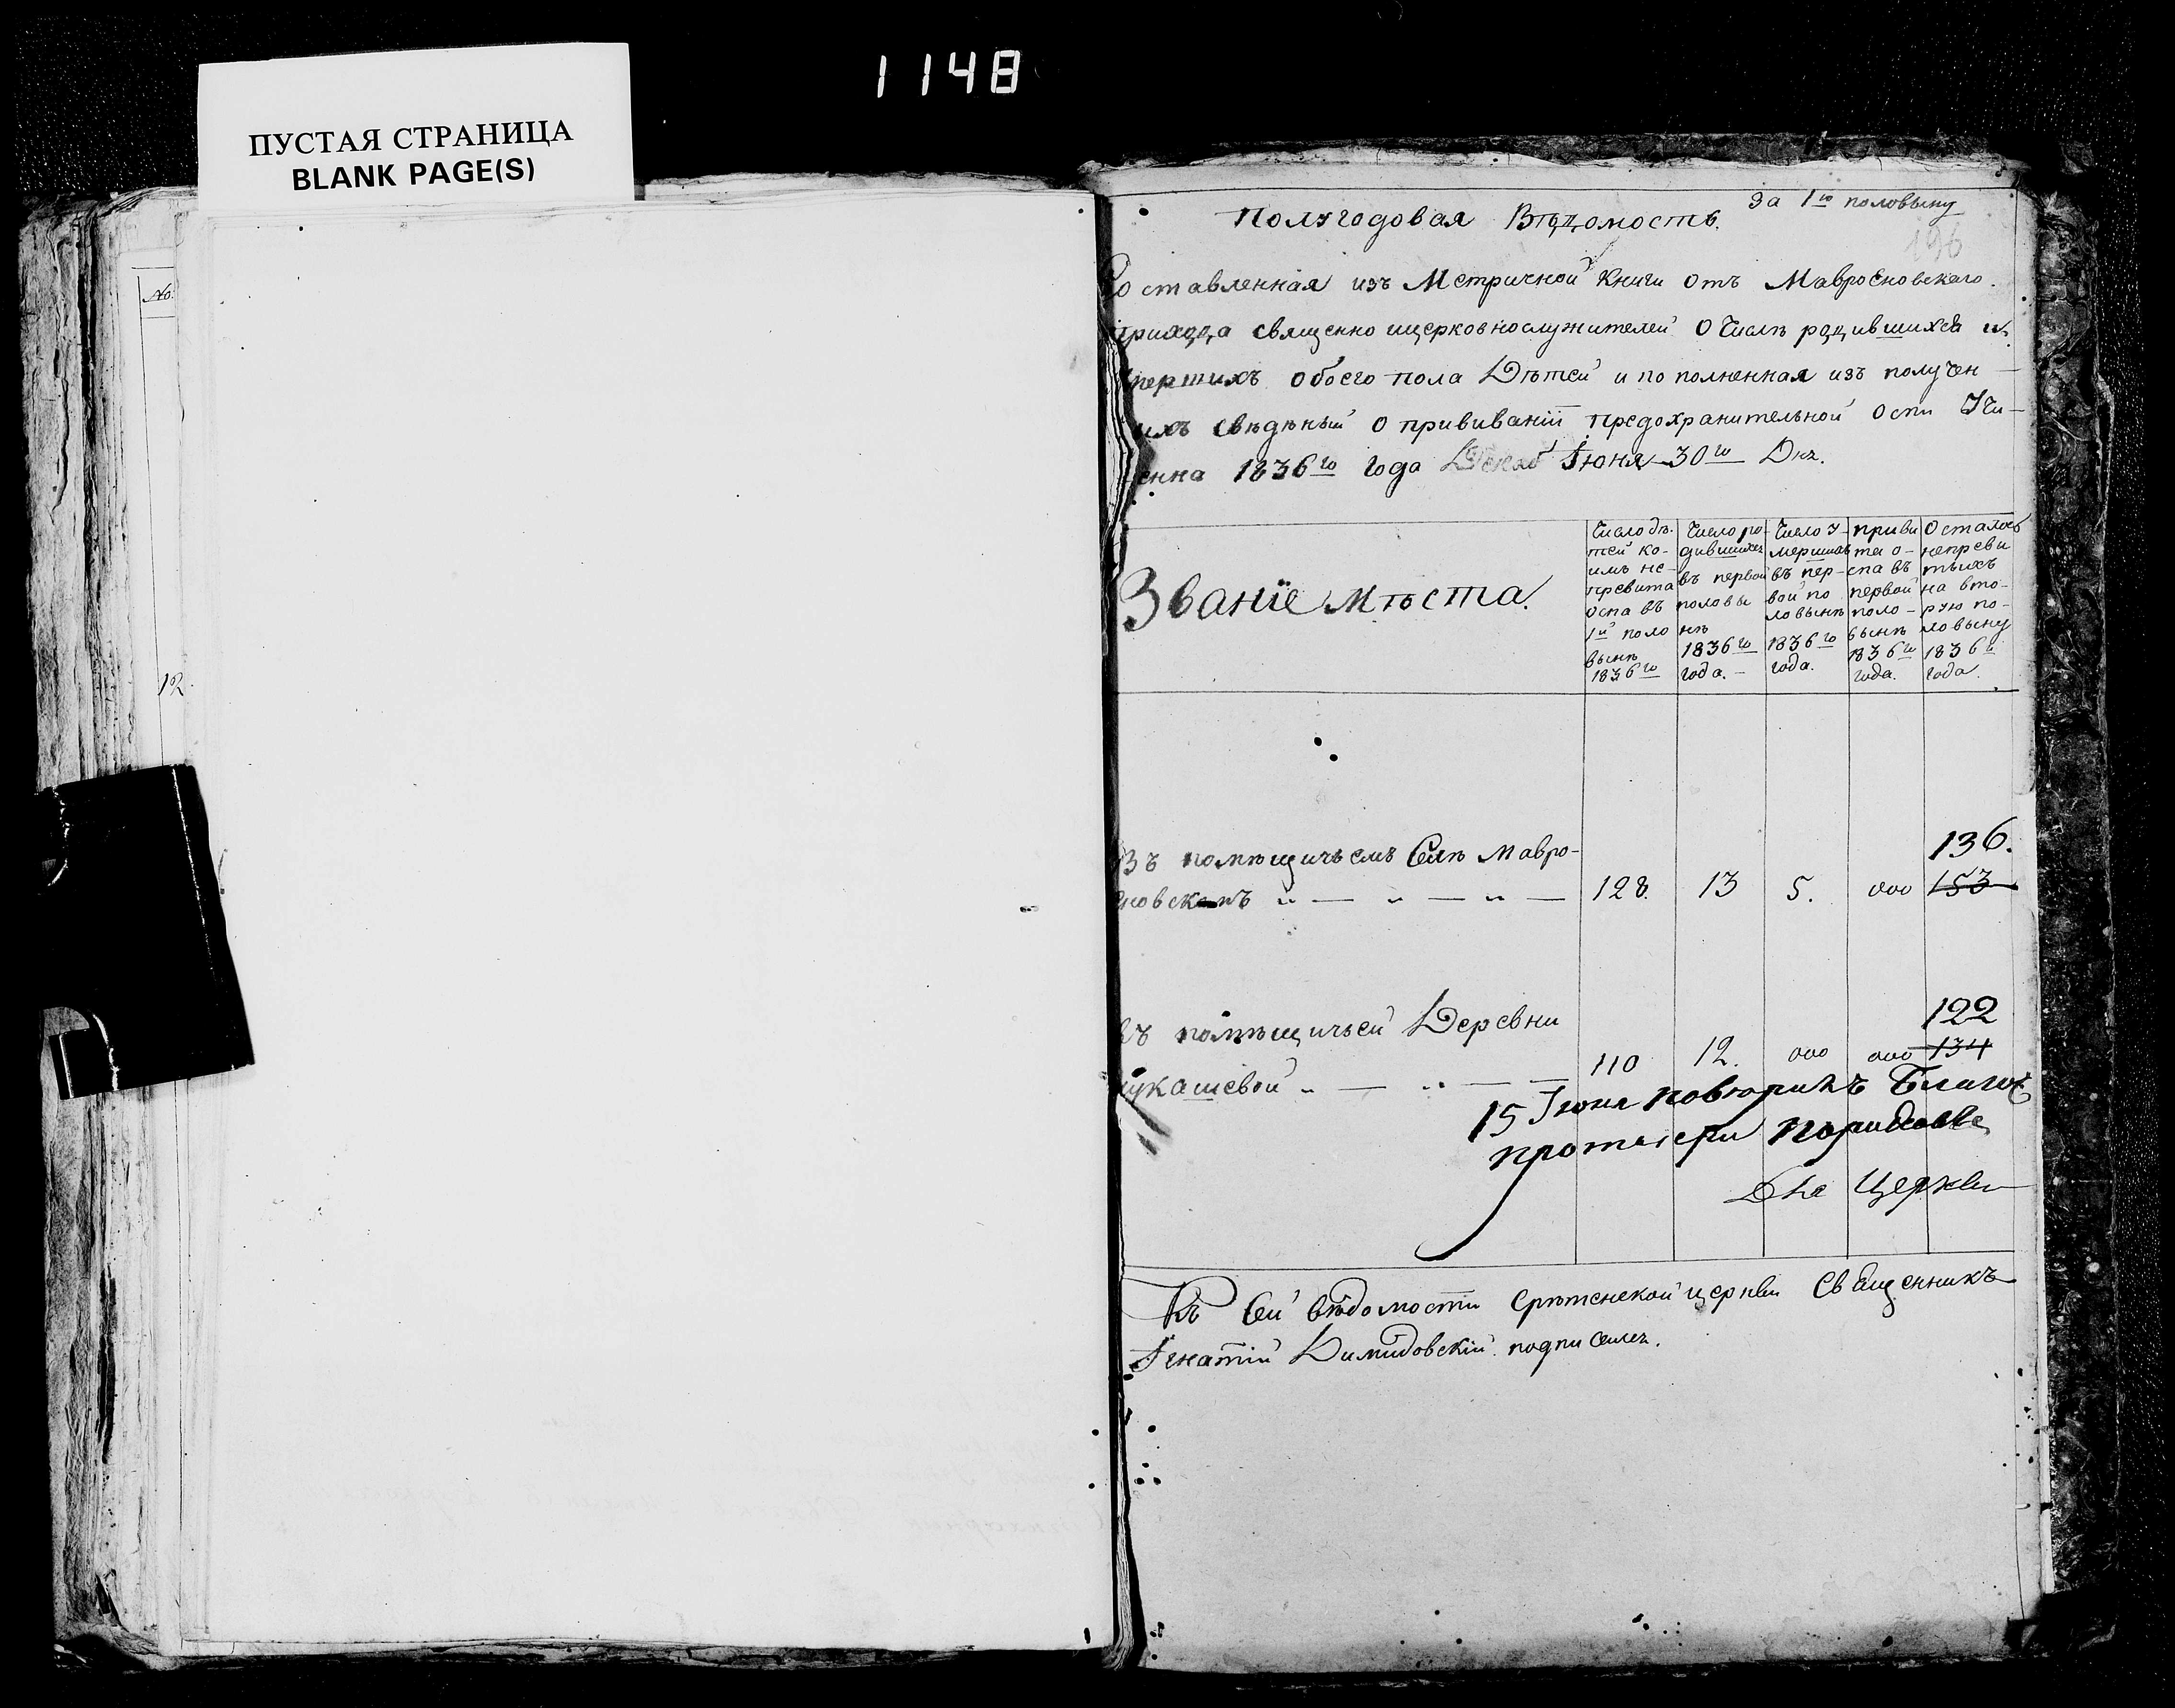 1148
ПУСТАЯ СТРАНИЦА
BLANK PAGE(S)
№.
12.
За 1ю половыну
Полугодовая Вѣдомость.
196
Составленная изъ Метричной Книги Отъ Мавроеновскаго.
прихода священно ицерковнослужителей О Числѣ родившихся и
мершихъ обоего пола Дѣтей и пополненная изъ получен—
ихъ свѣдѣный о прививаніи предохранительной Оспи Учи—
енна 1836го Года Іюня 30го Дня.
Званіе Мѣста.
Число дѣ-тей ко-имъ не-превита оспа въ 1й поло вынѣ 1836го
Число ро дившихся въ первой половы нѣ 1836го года.—
Число у-мершихъ въ пер-вой по ловынѣ 1836го года.
приви та о-спа въ первой поло-вынѣ 1836го года.
Осталось непреви тыхъ на вто-рую по-ловыну 1836й года.
136.
Въ помѣщичьемъ Селѣ Мавро-
еновскомъ „ — „ — „ — 128. 13 5. ооо 153
122
въ помѣщичьей Деревни
укашевой „ — „ — — 110 12. ооо ооо 134
15 Іюня
Церкви
Къ Сей вѣдомости Срѣтенской церкви Священникъ
Ігнатій Димидовскій подписался.